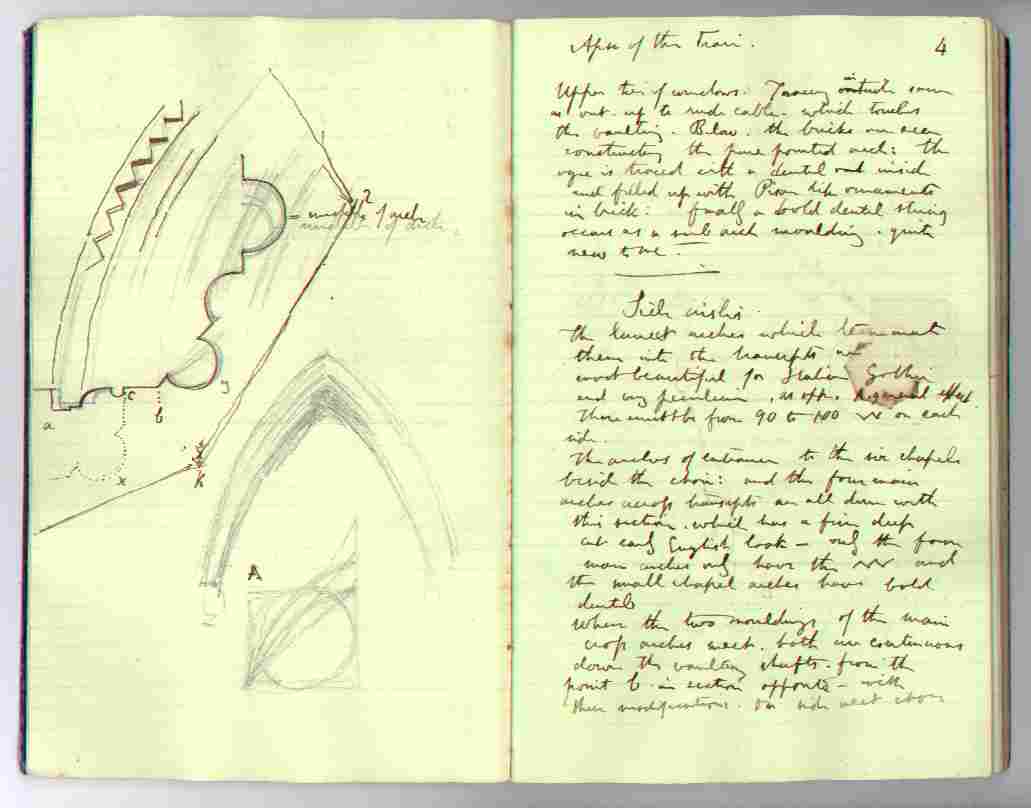 = middle of arch
middle of arch.
2
a
c
b
y
x
K
A
Apse of the Frari.
4
Upper tier of windows: Tracery inside same
as out. up to rude cable. which touches
the vaulting. Below. the bricks are seen
constructing the pure pointed arch: the
ogee is traced with a dental and inside
and filled up with Pisan like ornaments
in brick: finally a bold dental string
occurs as a sub arch moulding. quite
new to me.
Side aisles.
The lancet arches which terminate
them into the transepts are
most beautiful for Italian Gothic
and very peculiar, as opp. general
There must be from 90 to 100 on each
side.
The arches of entrance to the six chapels
beside the choir: and the four main
arches across transepts are all done with
this section. which has a fine deep
cut early English look — only the four
main arches only have the and
the small chapel arches have bold
dentils
Where the two mouldings of the main
cross arches meet. both are continuous
down the vaulting shafts. from the
point b. in section opposite — with
these modifications. On side next choir